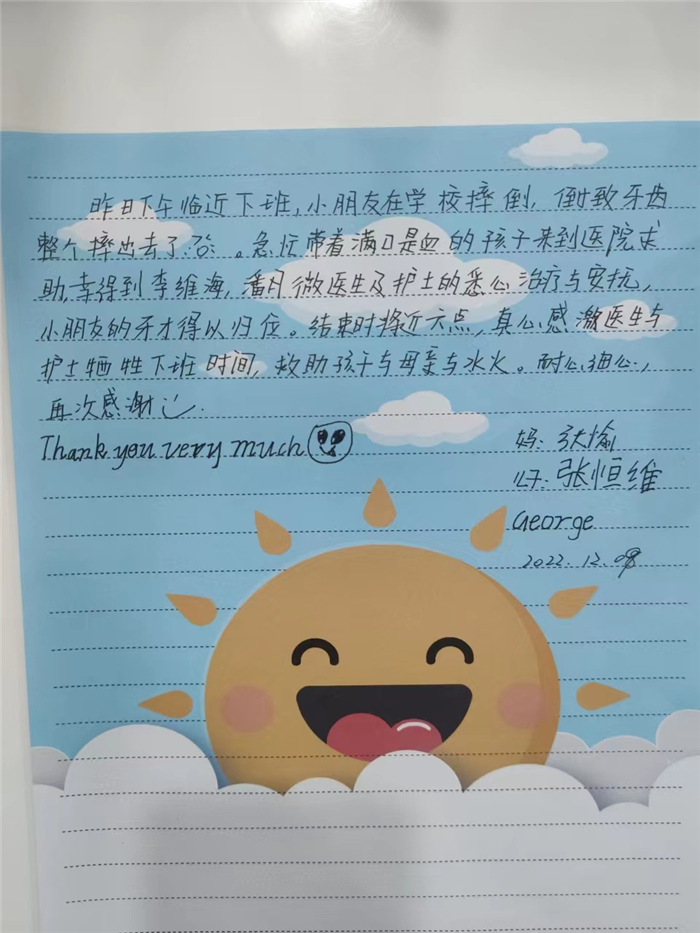 昨日下午临近下班,小朋友在学校摔倒,倒致牙齿
整个摔出去了。急忙带着满口是血的孩子来到医院求
助,幸得到李维海,潘月微医生及护士的悉心治疗与安抚,
小朋友的牙才得以归位。结束时将近六点,真心感激医生与
护士牺牲下班时间,救助孩子与母亲与水火。耐心细心,
再次感谢
Thank you very much
妈:张愉
儿子:张恒维
George
2022.12.09